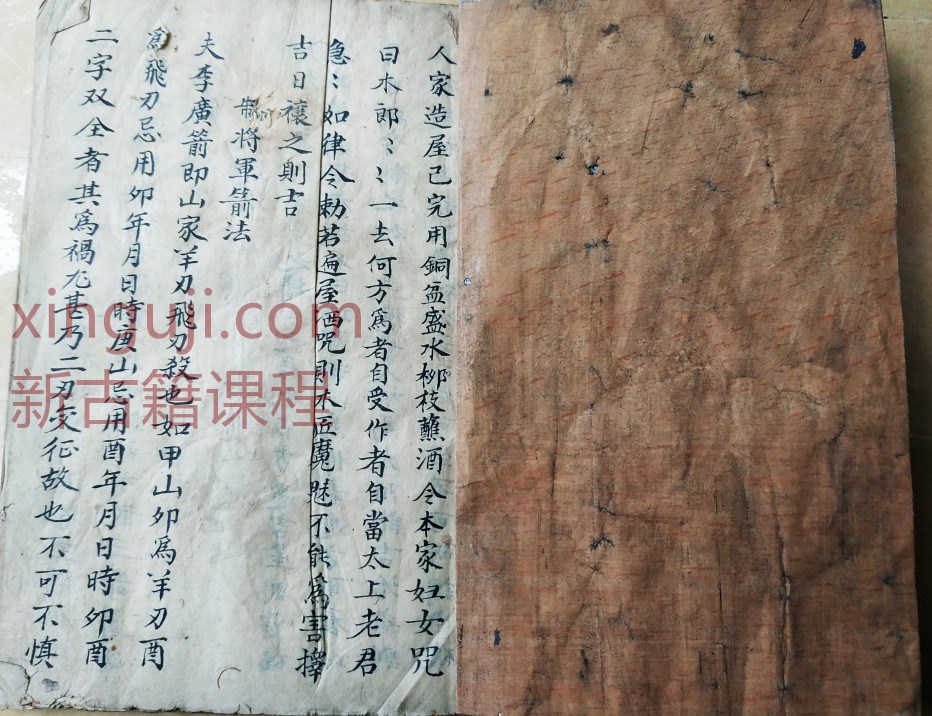 人家造屋已完用銅盆盛水柳枝蘸酒令本家妇女咒
曰木郎〻〻一去何方為者自受作者自當太上老君
急〻如律令勅若遍屋洒咒則木匠魔魅不能為害擇
吉日禳之則吉
將軍箭法
夫李廣箭即山家羊刃飛刃殺也如甲山卯為羊刃酉
為飛刃忌用卯年月日時庚山忌用酉年月日時卯酉
二字双全者其為禍尤甚乃二刃交征故也不可不慎
xinguji.com
新古籍课程